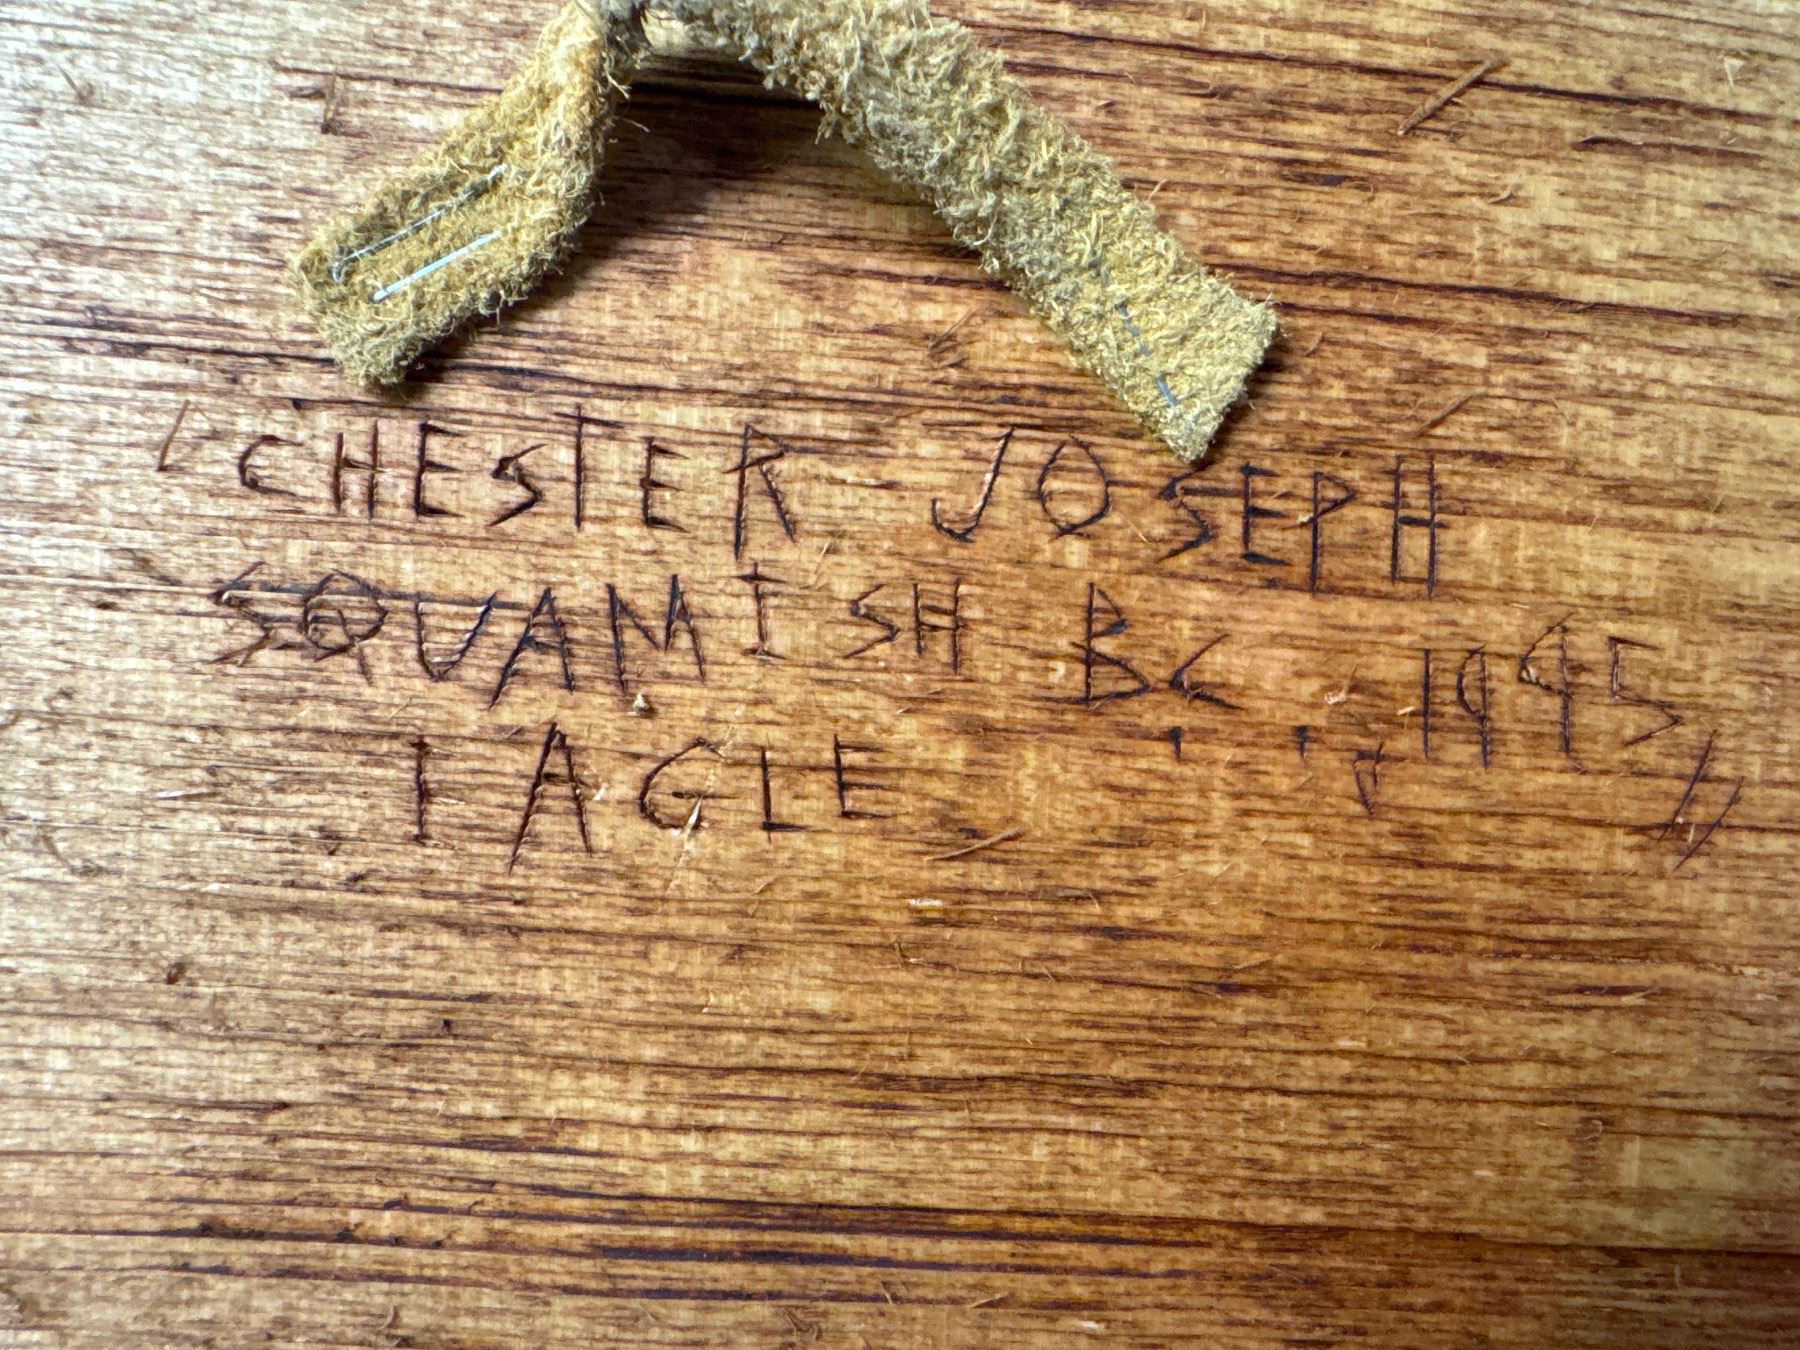 "CHESTER JOSEPH
SQUAMISH BC . . , 1995"
IAGLE